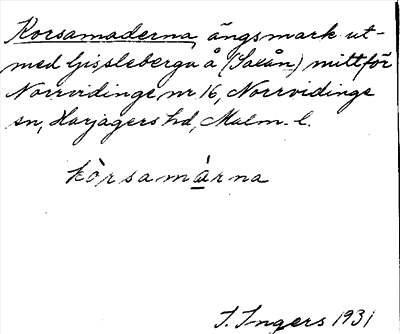 Korsamaderna, ängsmark ut-
med Gissleberga å (Saxån) mitt för
Norrvidinge nr 16, Norrvidinge
sn, Harjagers hd, Malm. l.
kòrsamárna
I. Ingers 1931